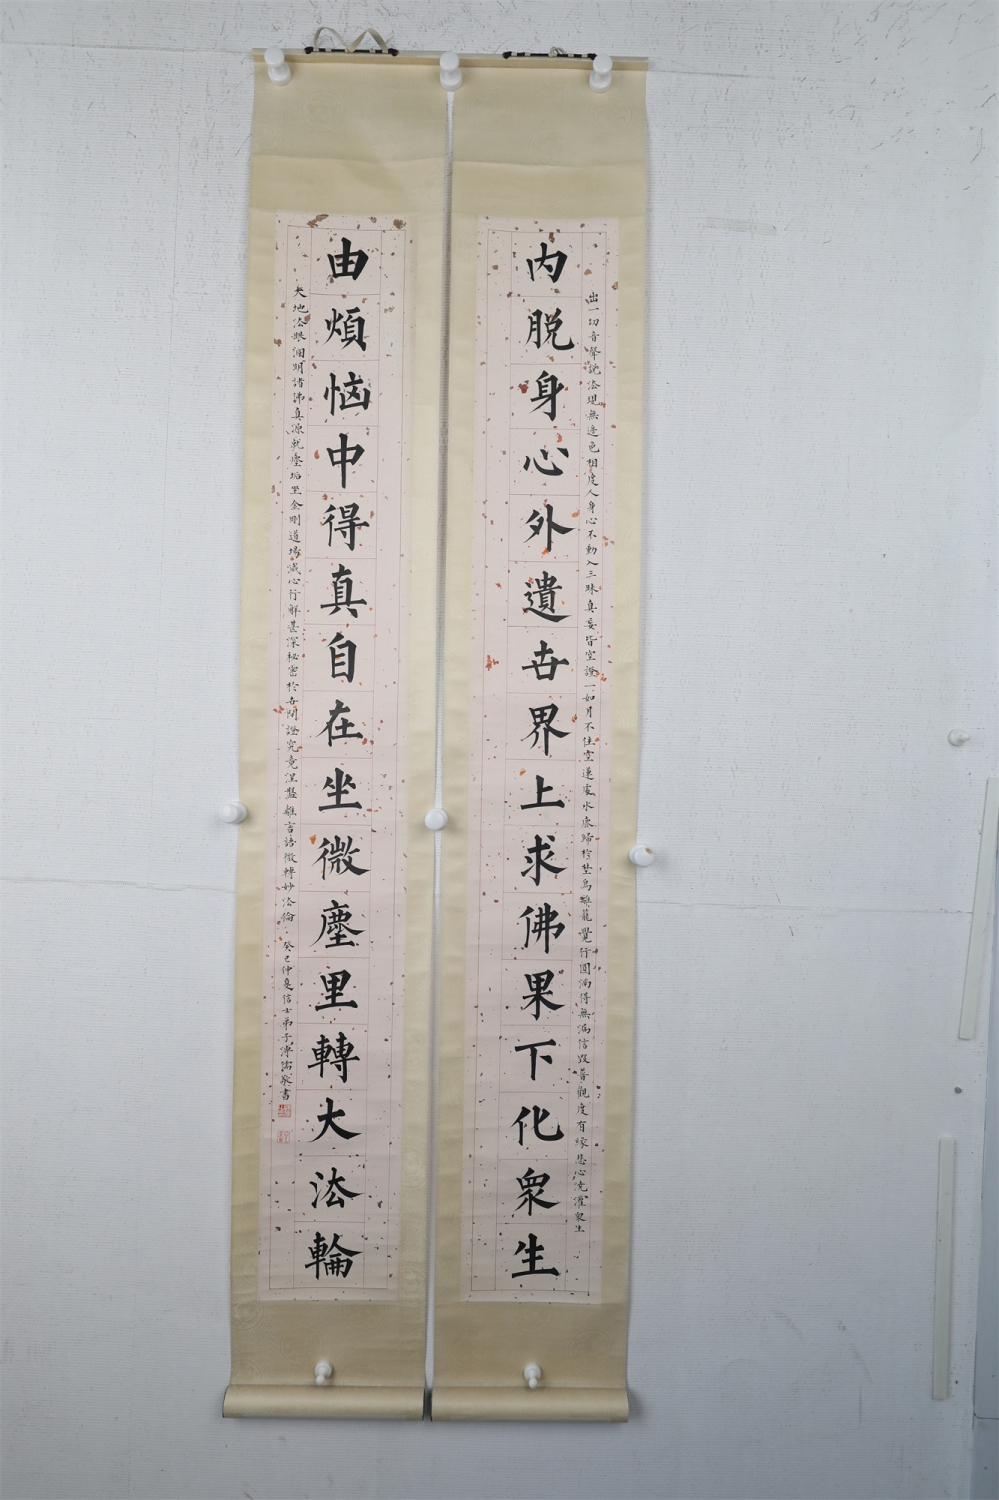 内脱身心外遺世界上求佛果下化衆生
出一切音聲說法現無邊色相度人身心不動入三昧真妄皆空證一如月不住空遂處水鹿歸於埜鳥離籠覺行圓滿得無漏信 普觀度有緣悲心 灌衆生
由煩惱中得真自在坐微塵里轉大法輪
天地法眼洞明諸佛真源就塵垢里金剛道場滅心行解甚深秘密於 證究竟涅盤離言語微轉妙法倫
癸巳仲夏信士弟子溥儒敬書